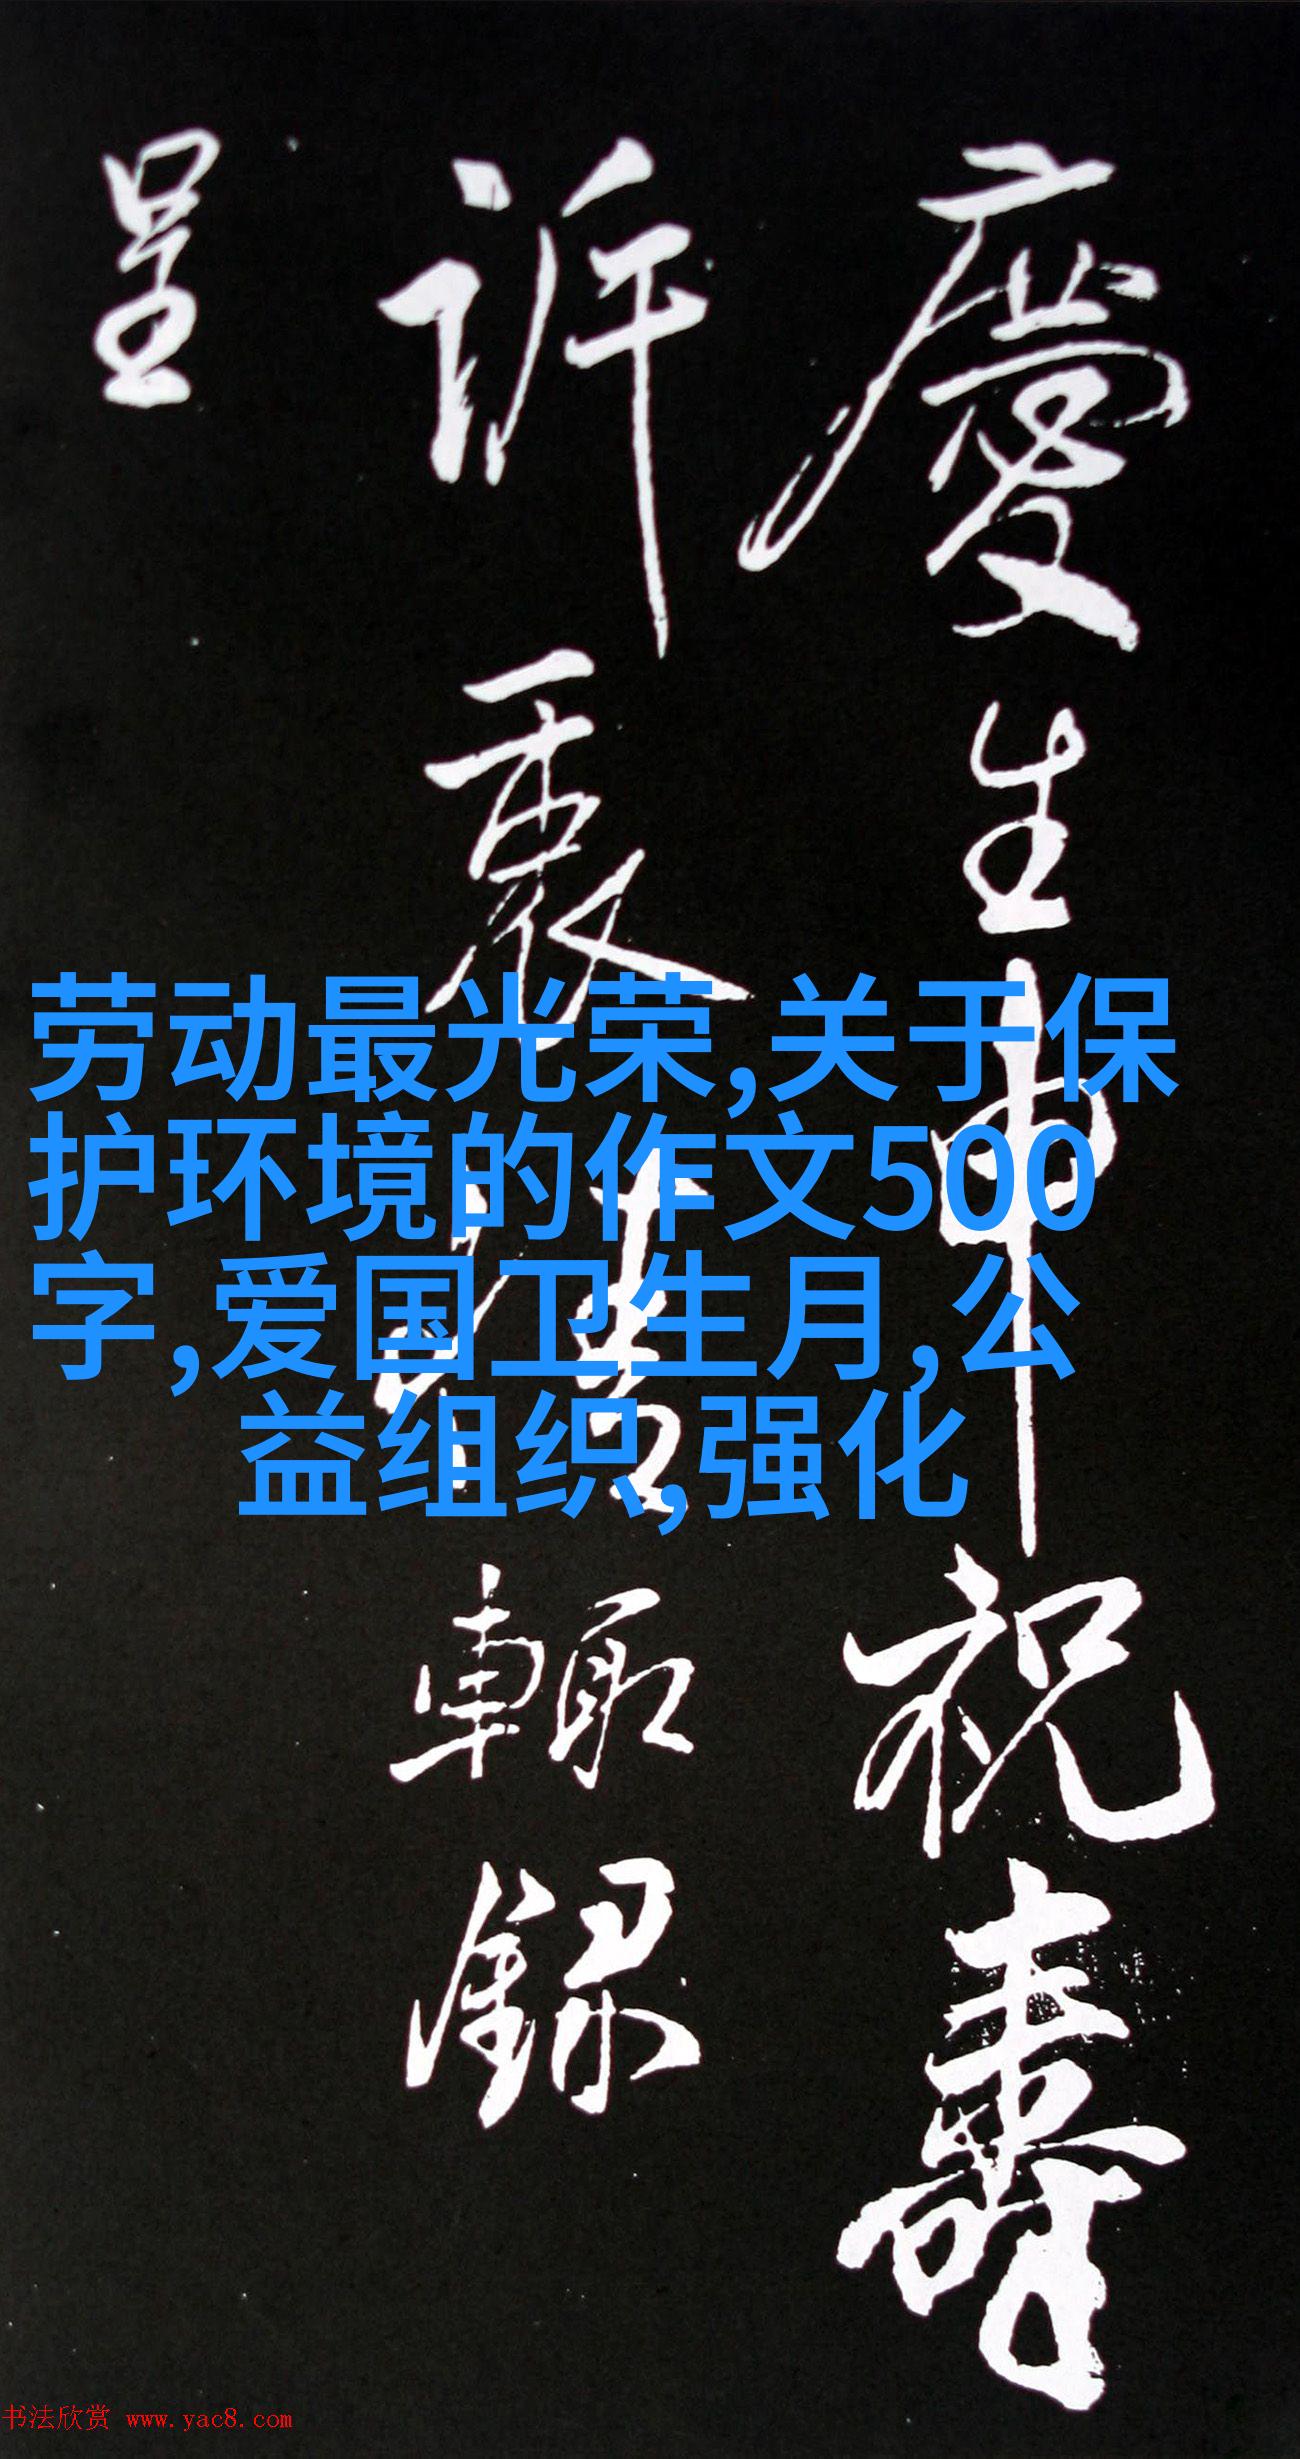 慶生申祝壽
訴衷情輙録
呈
劳动最光荣,关于保
护环境的作文500
字,爱国卫生月,公
益组织,强化
书法欣赏 www.yac8.com